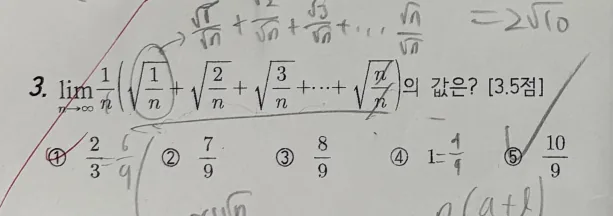 √1/√n + √2/√n + √3/√n + ... √n/√n = 2√10
3. lim n→∞ 1/n (√(1/n) + √(2/n) + √(3/n) + ⋯ + √(n/n))의 값은? [3.5점]
① 2/3 = 6/9 ② 7/9 ③ 8/9 ④ 1 = 9/9 ⑤ 10/9